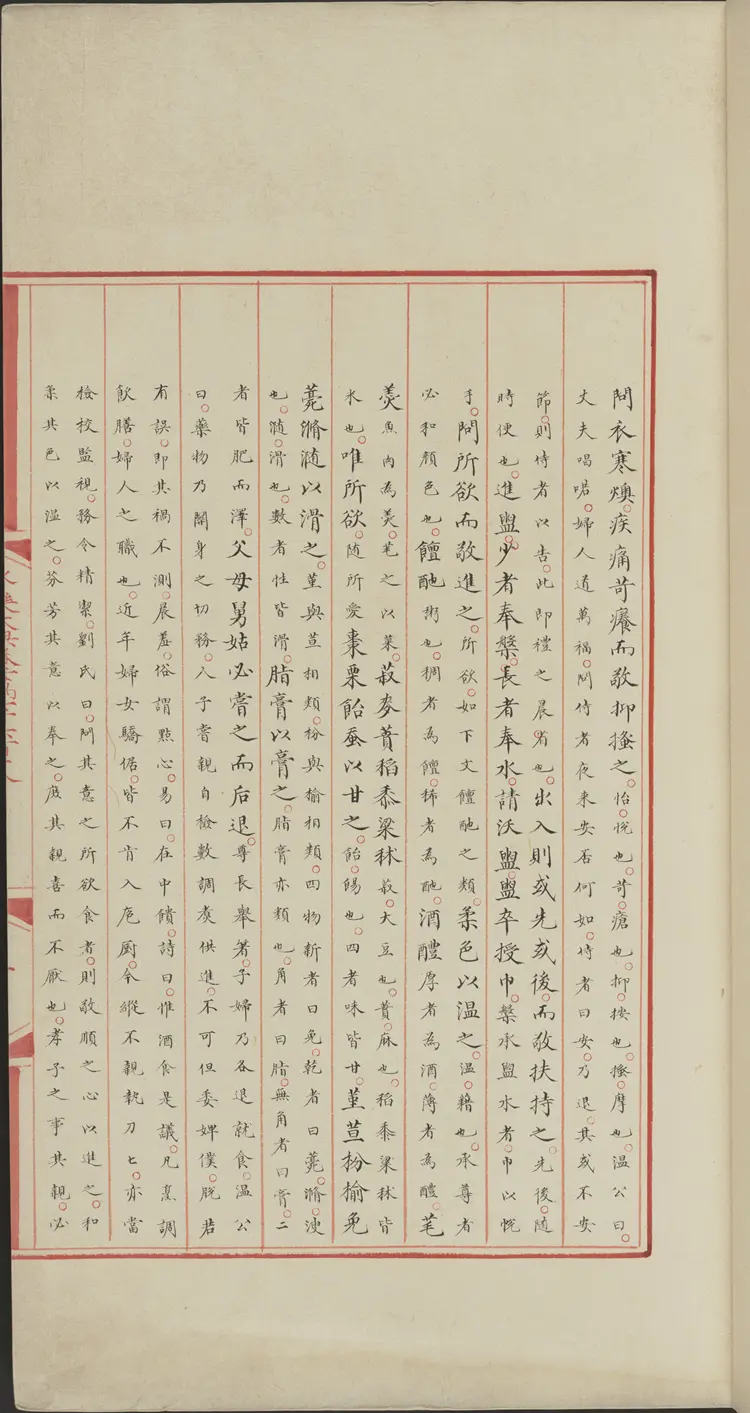 問衣寒燠。疾痛苛癢而敬抑搔之。怡。悅也。苛。瘡也。抑。按也。搔。摩也。温公曰。
丈夫唱喏。婦人道萬福。問侍者夜來安否何如。侍者曰安。乃退。其或不安
節。則侍者以告。此即禮之晨省也。出入則或先或後。而敬扶持之。先後。隨
時便也。進盥。少者奉槃。長者奉水。請沃盥。盥卒授巾。槃承盥水者。巾以帨
手。問所欲而敬進之。所欲。如下文饘酏之類。柔色以温之。温。藉也。承尊者
必和顏色也。饘酏粥也。稠者為饘。稀者為酏。酒醴厚者為酒。薄者為醴。芼
羮魚肉為羮。芼之以菜。菽麥蕡稻黍粱秫菽。大豆也。蕡。麻也。稻黍粱秫皆
米也。唯所欲。随所愛棗栗飴蚕以甘之。飴。餳也。四者味皆甘。菫荁枌榆免
薧滫瀡以滑之。菫與荁相類。枌與榆相類。四物新者曰免。乾者曰薧。滫。溲
也。瀡。滑也。數者性皆滑。脂膏以膏之。脂膏亦類也。角者曰脂。無角者曰膏。二
者皆肥而澤。父母舅姑必嘗之而后退。尊長舉箸。子婦乃各退就食。温公
曰。藥物乃關身之切務。人子嘗親自檢數調煑供進。不可但委婢僕。脱若
有誤。即其禍不測。晨羞。俗謂點心。易曰。在中饋。詩曰。惟酒食是議。凡烹調
飲膳。婦人之職也。近年婦女驕倨。皆不肯入庖厨。今縱不親執刀匕。亦當
檢校監視。務令精潔。劉氏曰。問其意之所欲食者。則敬順之心以進之。和
柔其色以温之。芬芳其意以奉之。庶其親喜而不厭也。孝子之事其親。必